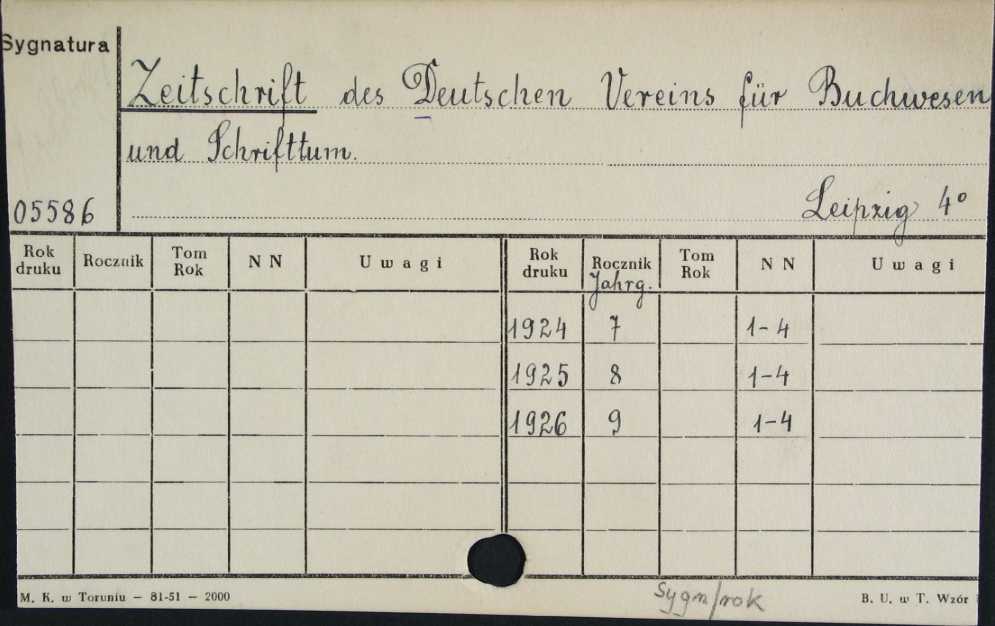 Sygnatura
Zeitschrift des Deutschen Vereins für Buchwesen
und Schrifttum.
05586
Leipzig 4°
Rok druku Rocznik Tom Rok N N Uwagi Rok druku Rocznik Tom Rok N N Uwagi
Jahrg.
1924 7 1-4
1925 8 1-4
1926 9 1-4
M. K. w Toruniu — 81-51 — 2000
Sygn/rok
B. U. w T. Wzór